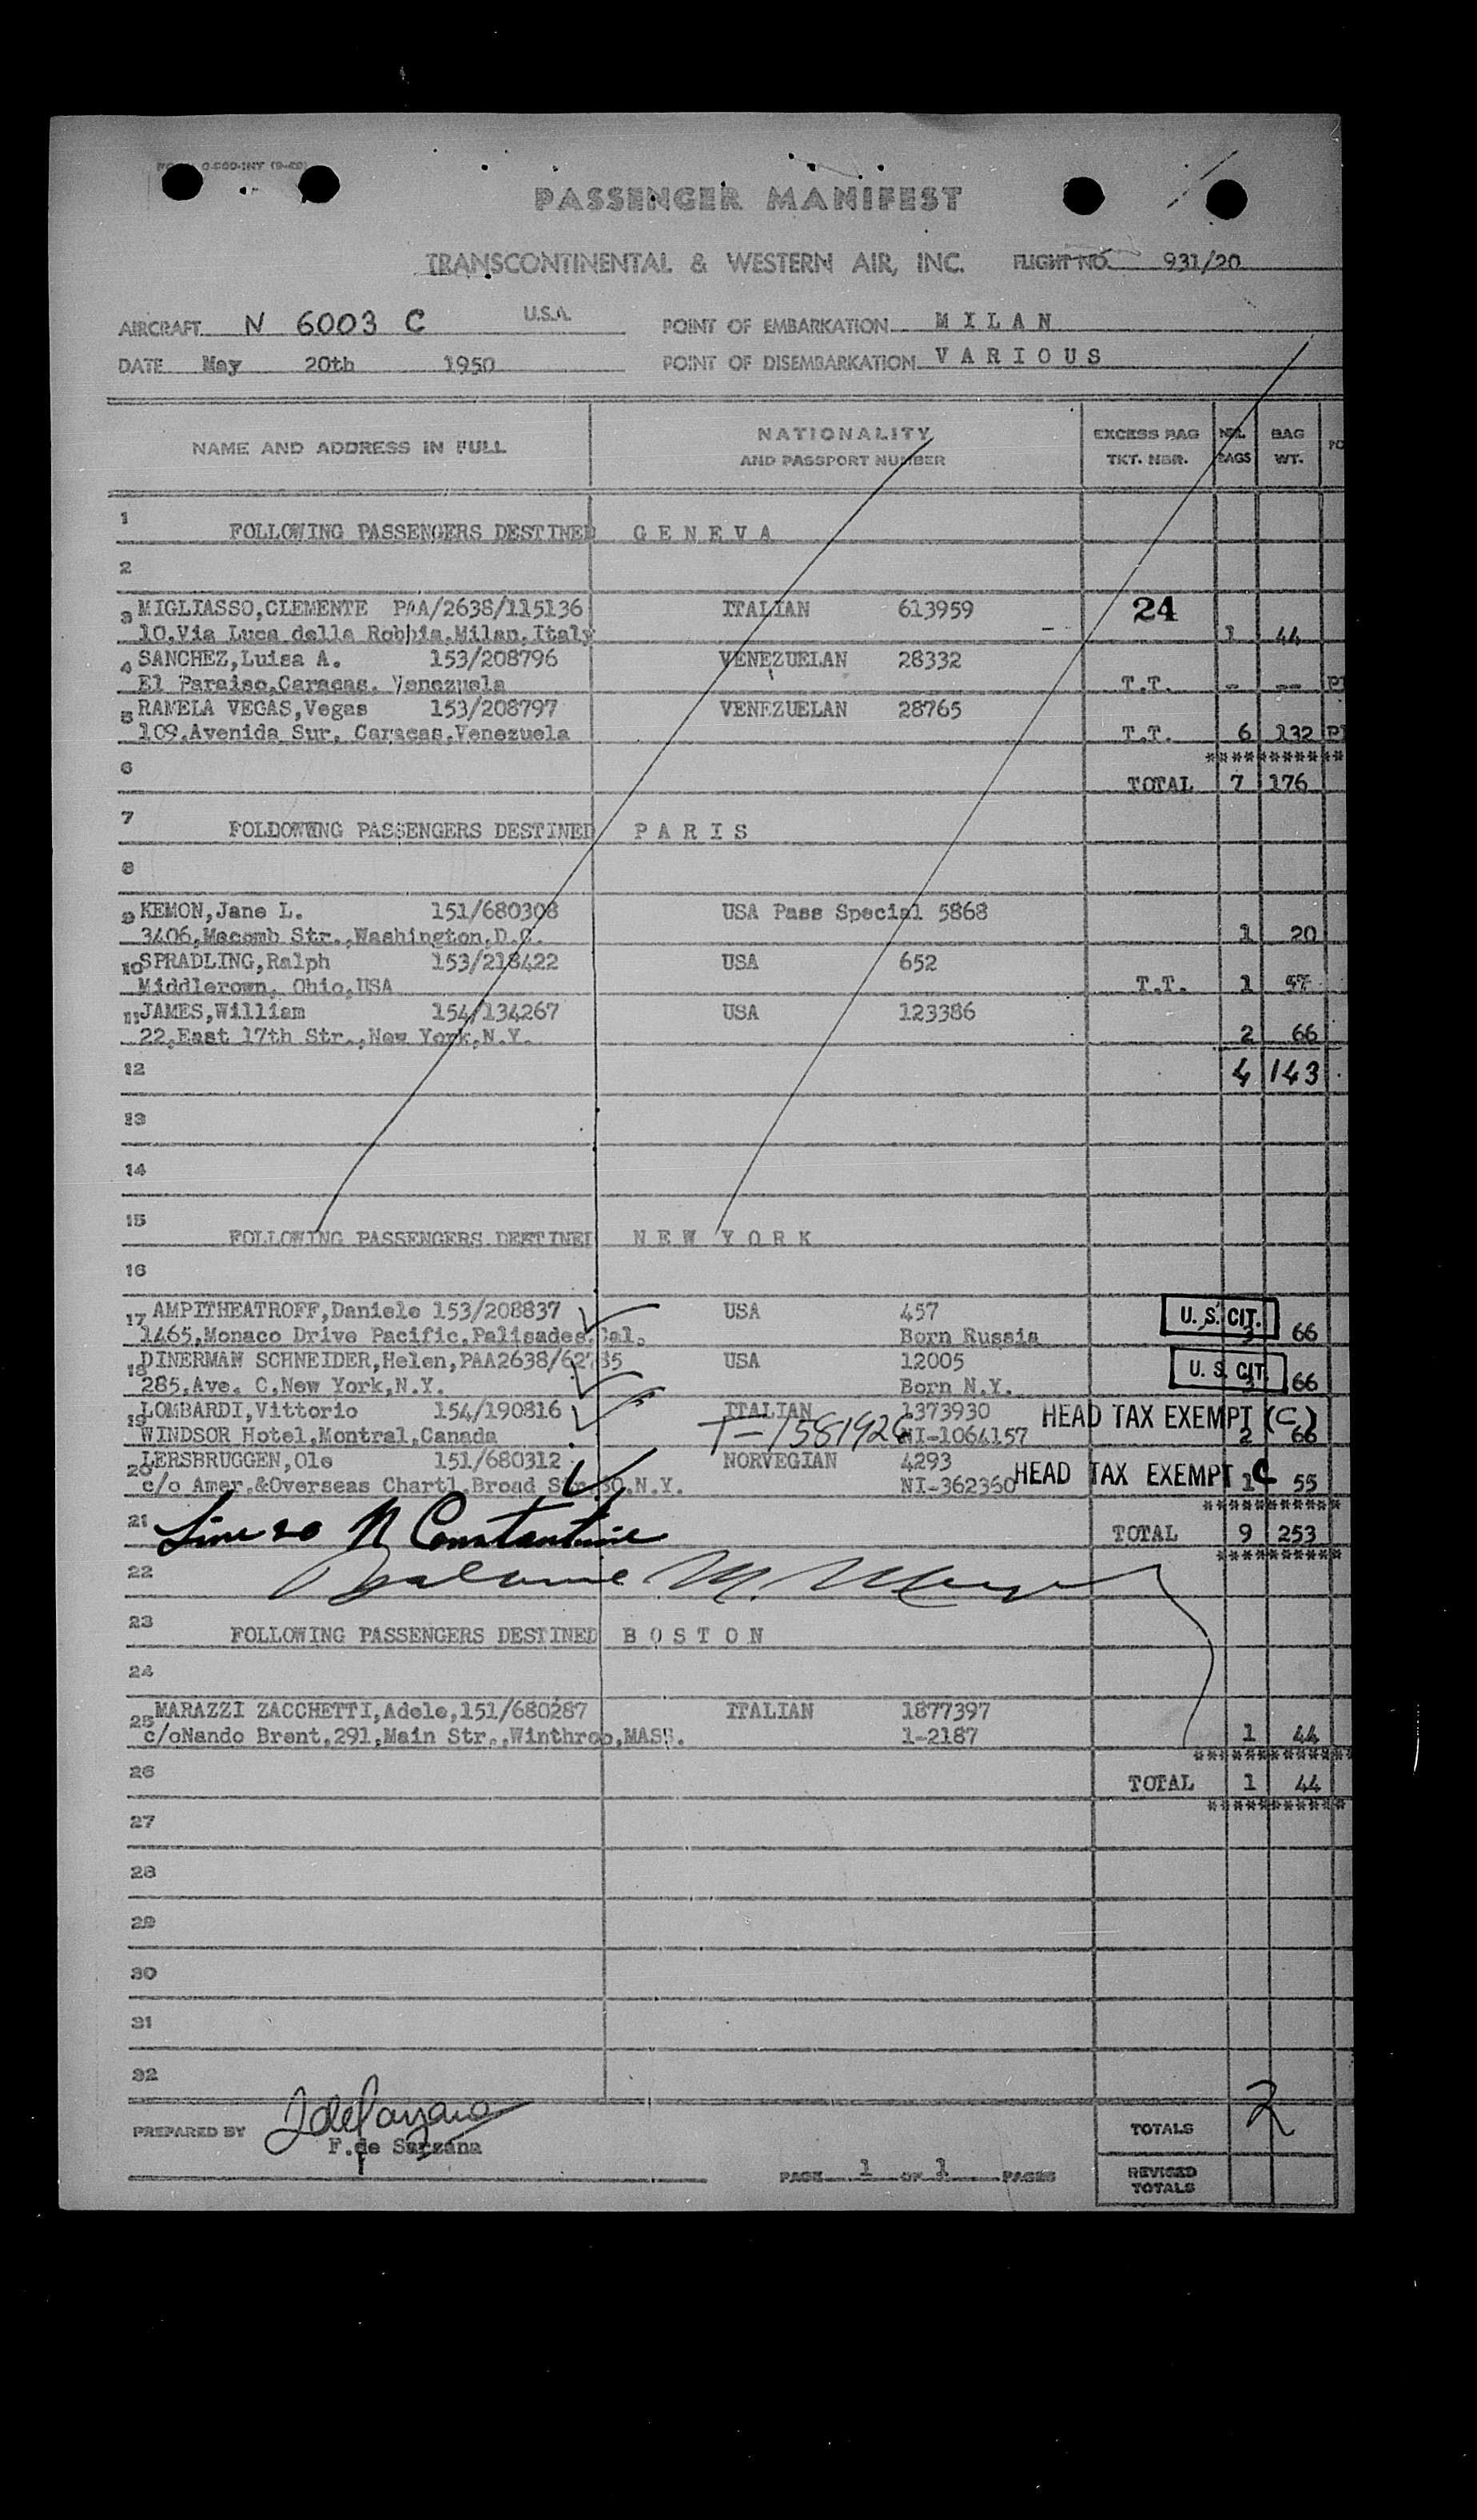 PASSENGER MANIFEST
TRANSCONTINENTAL & WESTERN AIR, INC. FLIGHT NO. 931/20
AIRCRAFT N 6003 C U.S.A. POINT OF EMBARKATION M I L A N
DATE May 20th 1950 POINT OF DISEMBARKATION V A R I O U S
NAME AND ADDRESS IN FULL NATIONALITY AND PASSPORT NUMBER EXCESS BAG TKT. NBR. NBR. BAGS BAG WT.
1 FOLLOWING PASSENGERS DESTINED G E N E V A
2
3 MIGLIASSO,CLEMENTE PAA/2638/115136 ITALIAN 613959 24
10,Via Luca della Robbia,Milan,Italy 1 44
4 SANCHEZ,Luisa A. 153/208796 VENEZUELAN 28332
El Paraiso,Caracas, Venezuela T.T. - --
5 RAMELA VEGAS,Vegas 153/208797 VENEZUELAN 28765
109,Avenida Sur, Caracas,Venezuela T.T. 6 132
***********
6 TOTAL 7 176
7 FOLDOWWNG PASSENGERS DESTINED P A R I S
8
9 KEMON,Jane L. 151/680308 USA Pass Special 5868
3406,Macomb Str.,Washington,D.C. 1 20
10 SPRADLING,Ralph 153/218422 USA 652
Middlerown, Ohio,USA T.T. 1 57
11 JAMES,William 154/134267 USA 123386
22,East 17th Str.,New York,N.Y. 2 66
12 4 143
13
14
15 FOLLOWING PASSENGERS DESTINED N E W Y O R K
16
17 AMPITHEATROFF,Daniele 153/208837 USA 457 U.S. CIT.
1465,Monaco Drive Pacific,Palisades,Cal. Born Russia 3 66
18 DINERMAN SCHNEIDER,Helen,PAA2638/62785 USA 12005 U.S. CIT.
285,Ave. C,New York,N.Y. Born N.Y. 3 66
19 LOMBARDI,Vittorio 154/190816 ITALIAN 1373930 HEAD TAX EXEMPT (C)
WINDSOR Hotel,Montral,Canada T-1581926 NI-1064157 2 66
20 LERSBRUGGEN,Ole 151/680312 NORWEGIAN 4293 HEAD TAX EXEMPT C
c/o Amer.&Overseas Chart1,Broad Str.30,N.Y. NI-362360 1 55
***********
21 Line 20 N Constantine TOTAL 9 253
**********
22 M.
23 FOLLOWING PASSENGERS DESTINED B O S T O N
24
25 MARAZZI ZACCHETTI,Adele,151/680287 ITALIAN 1877397
c/oNando Brent,291,Main Str.,Winthrop,MASS. 1-2187 1 44
************
26 TOTAL 1 44
***********
27
28
29
30
31
32
PREPARED BY F.de Sarzana TOTALS 2
PAGE 1 OF 1 PAGES REVISED TOTALS